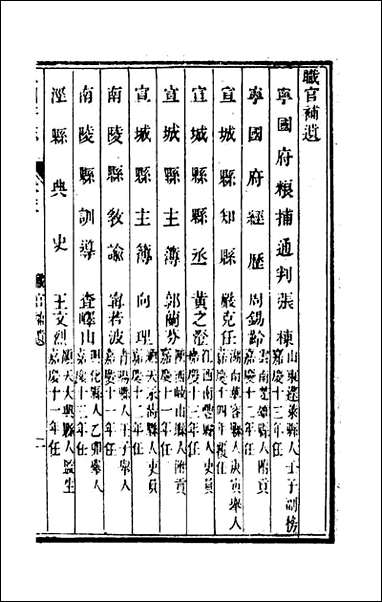 職官補遺
寧國府粮捕通判張棟山東蓬萊縣人壬子副榜
嘉慶十三年任
寧國府經歷周錫齡雲南楚雄縣人附貢
嘉慶十二年任
宣城縣知縣嚴克任湖南縣人庚寅舉人
嘉慶十四年任
宣城縣縣丞黃之澄江西南豐縣人吏員
嘉慶十三年任
宣城縣主簿郭蘭芬陝西岐山縣人附貢
嘉慶十一年任
宣城縣主簿向理順天縣人吏員
嘉慶十二年任
南陵縣教諭甯若波青陽縣人壬子舉人
嘉慶十一年任
南陵縣訓導查嶧山縣人乙卯舉人
嘉慶十三年任
涇縣典史王文烈順天大興縣人監生
嘉慶十一年任
職官補遺